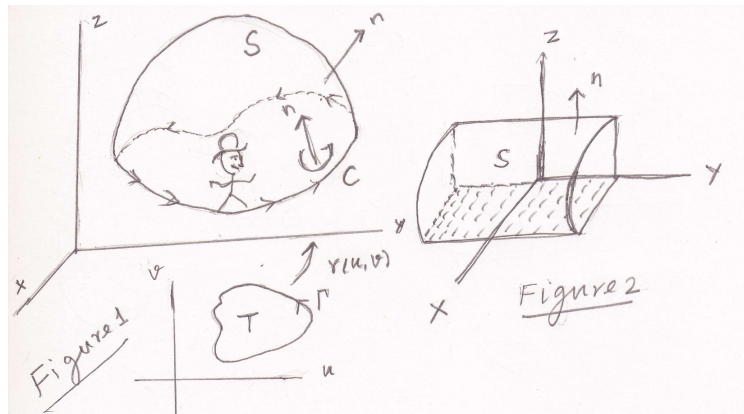 z
S
n
n
C
y
x
v
r(u,v)
T
Γ
u
Figure 1
z
n
S
y
x
Figure 2